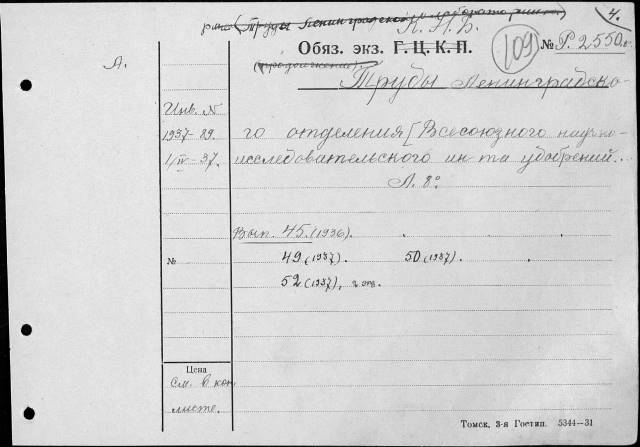 (Труды Ленинградской лаборатории) 4.
К.П.Б.
Обяз. экз. Г.Ц.К.П. 109 № Р.2550.
(продолжение).
А. Труды Ленинградско-
Инв. N
1937-89. го отделения [Всесоюзного научно-
1/IV-37. исследовательского ин-та удобрений...
Л. 8°
Вып. 45.(1936).
№ 49 (1937). 50 (1937).
52 (1937),
Цена
см. в кон.
листе.
Томск, 3-я Гостип. 5344—31